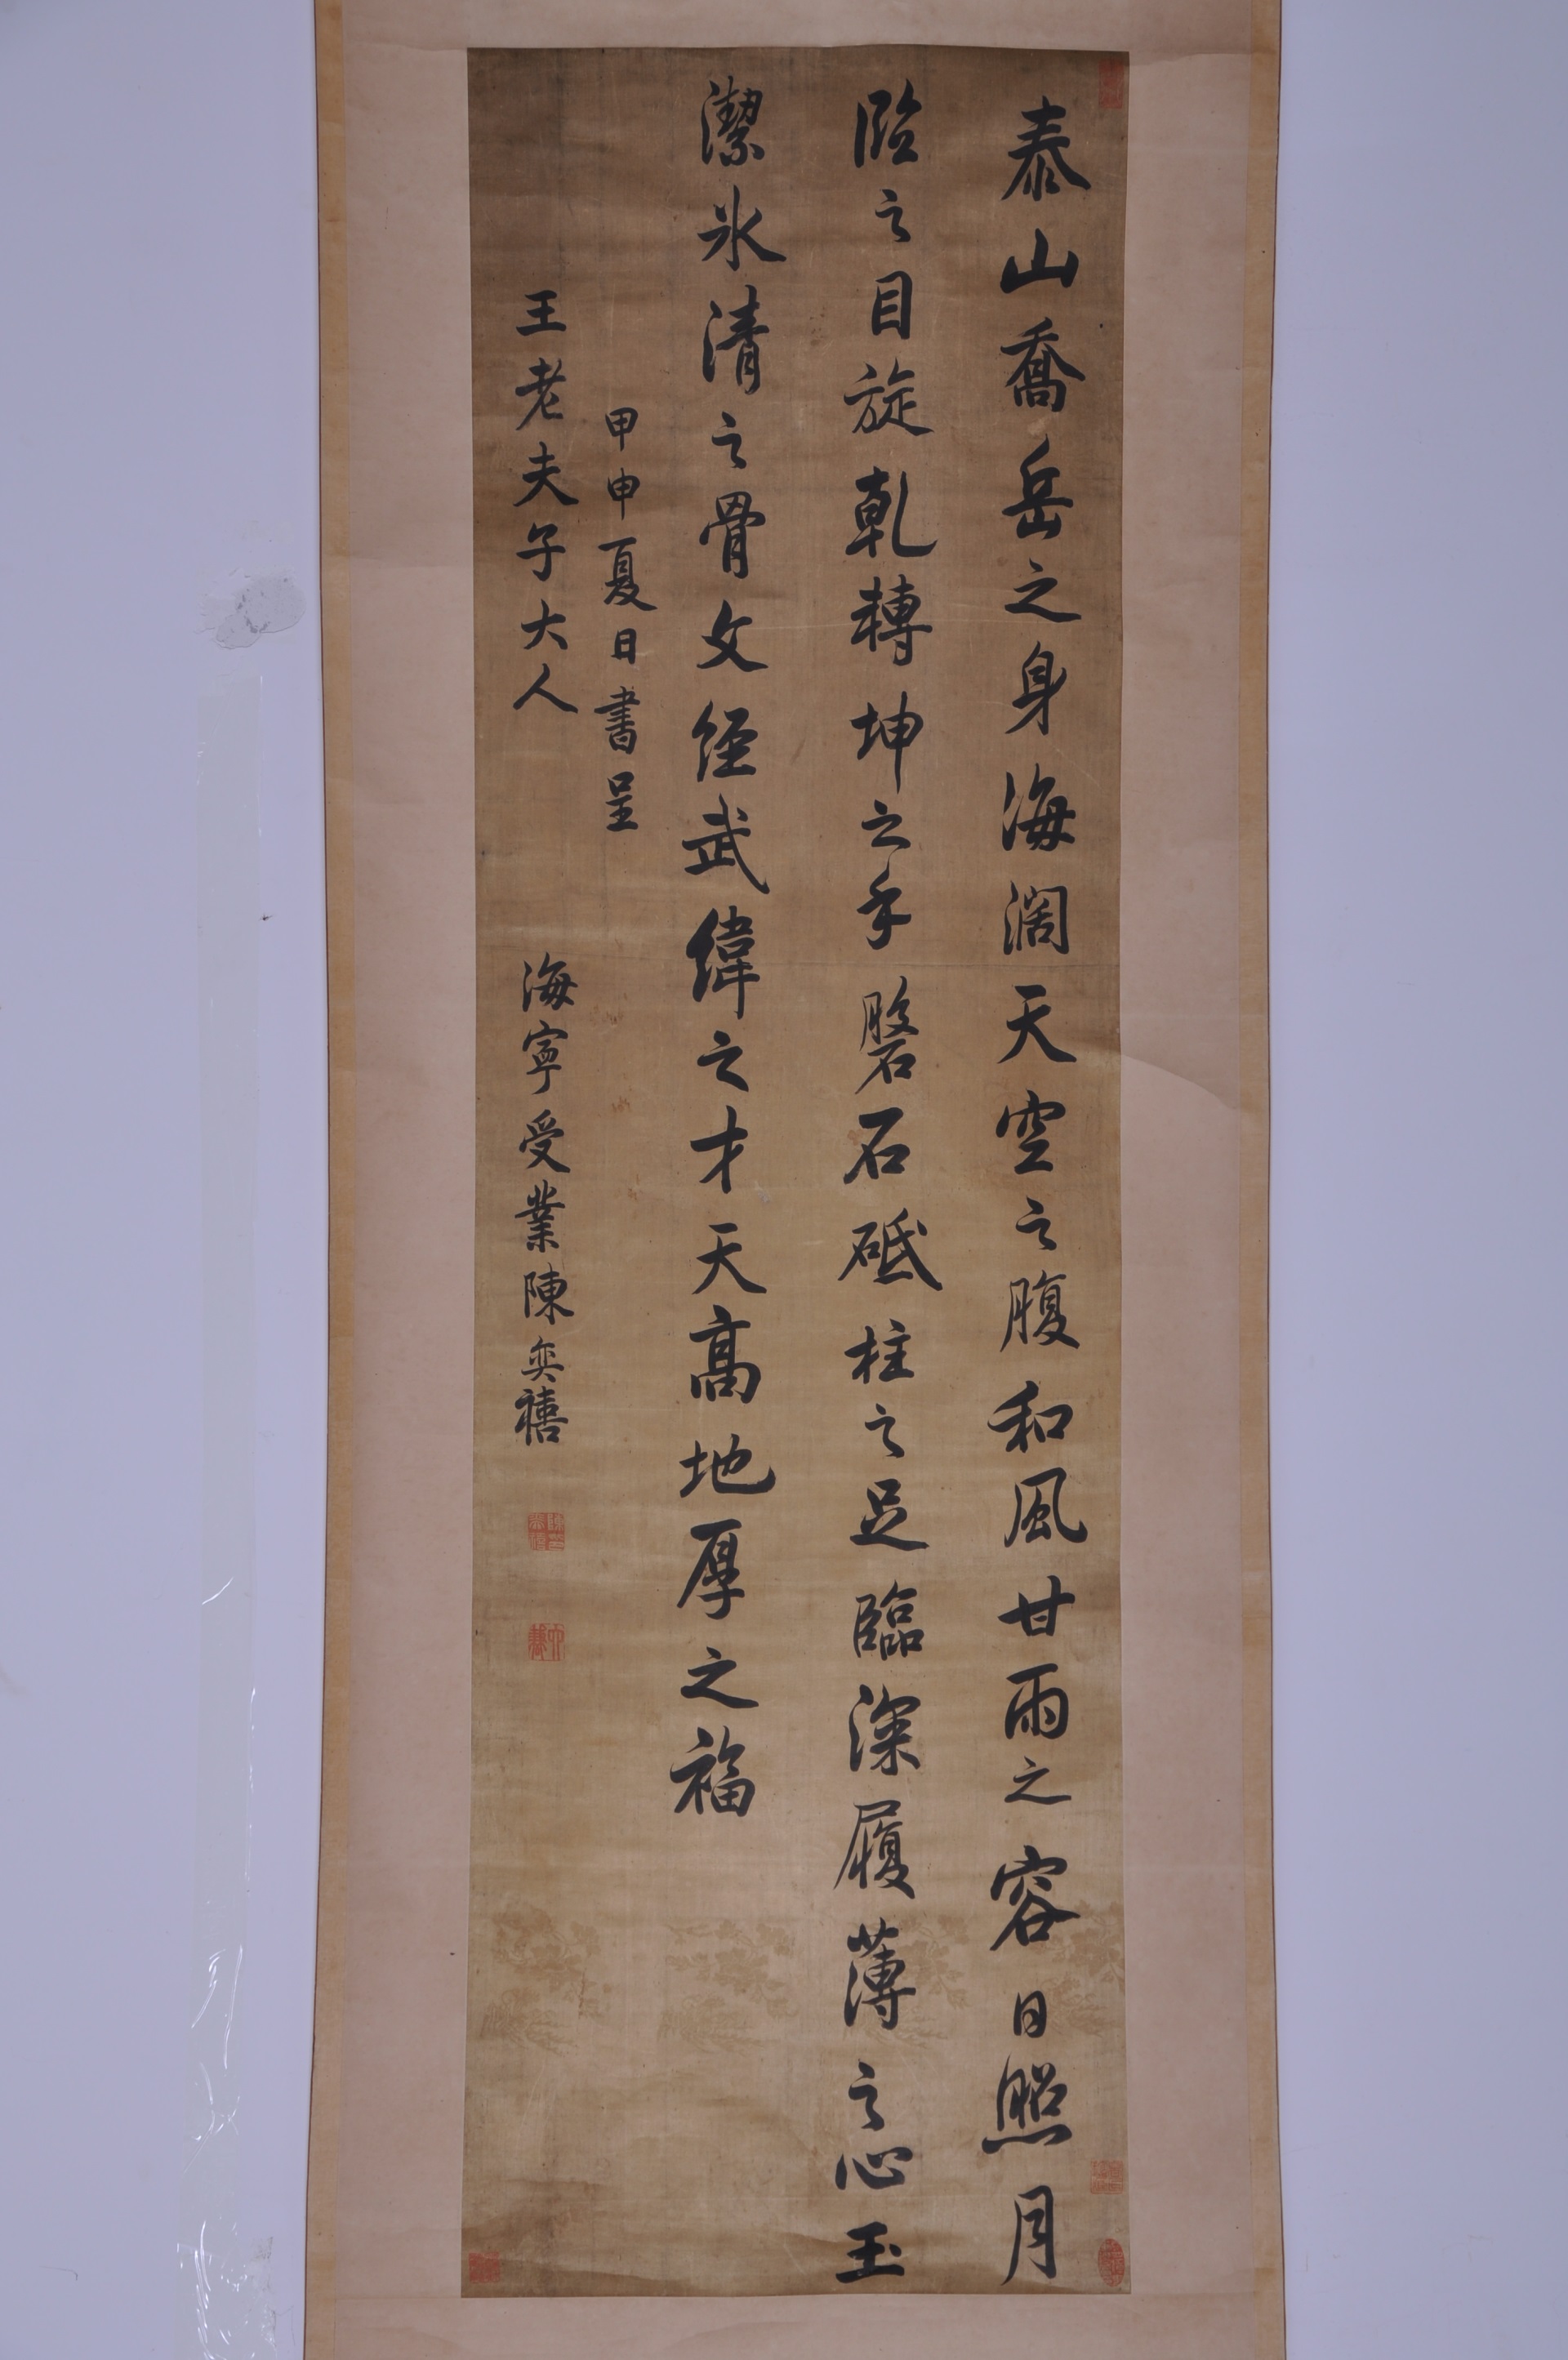 泰山喬岳之身海濶天空之腹和風甘雨之容日照月
臨之目旋乾轉坤之手磐石砥柱之足臨深履薄之心玉
潔氷清之骨文經武緯之才天高地厚之福
甲申夏日書呈
王老夫子大人
海寧受業陳奕禧